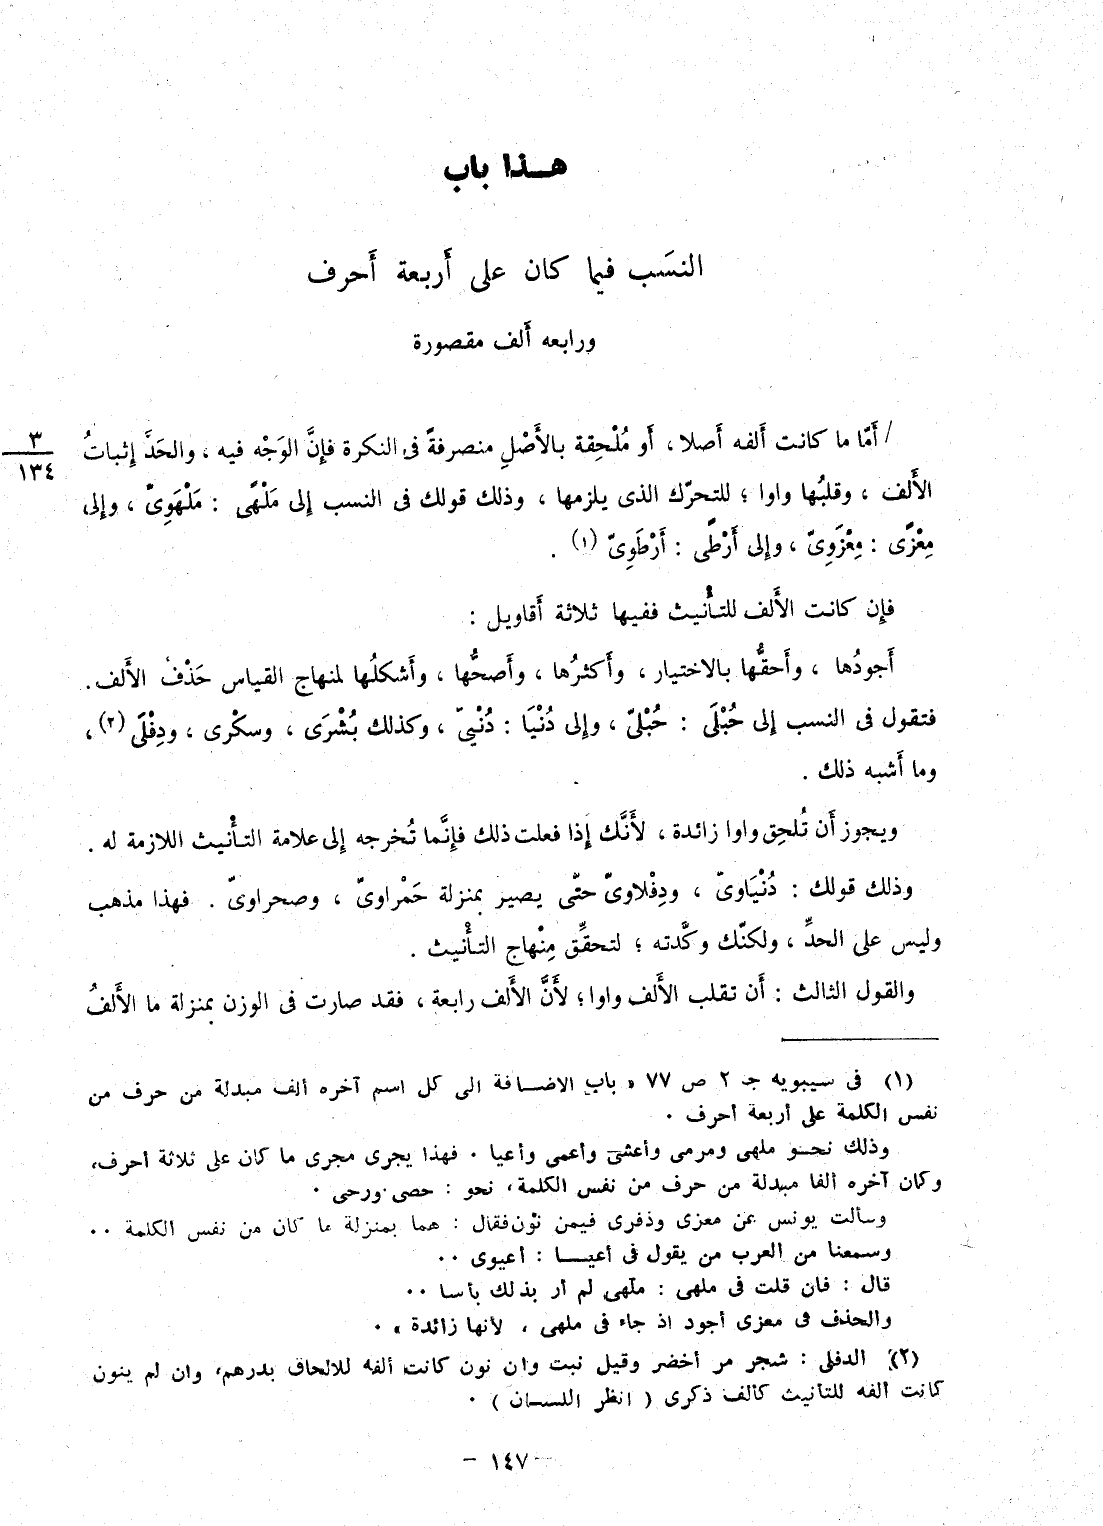 هـــذا باب
النسَب فيما كان على أَربعة أَحرف
ورابعه ألف مقصورة
/ أَمّا ما كانت أَلفه أَصلا ، أَو مُلْحِقة بالأَصْلِ منصرفةً فى النكرة فإنَّ الوَجْه فيه ، والحَدَّ إِثباتُ
٣
١٣٤
الأَلف ، وقلبُها واوا ؛ للتحرّك الذى يلزمها ، وذلك قولك فى النسب إلى مَلْهًى : مَلْهَوِىّ ، وإلى
مِعْزًى : مِعْزَوِىّ ، وإلى أَرْطًى : أَرْطَوِىّ (١) .
فإِن كانت الأَلف للتأْنيث ففيها ثلاثة أَقاويل :
أَجودُها ، وأَحقُّها بالاختيار ، وأَكثرُها ، وأَصحُّها ، وأَشكلُها لمنهاج القياس حَذْف الأَلف .
فتقول فى النسب إلى حُبْلَى : حُبْلِىّ ، وإلى دُنْيَا : دُنْيِىّ ، وكذلك بُشْرَى ، وسكْرى ، ودِفْلَى (٢) ،
وما أَشبه ذلك .
ويجوز أَن تُلحِق واوا زائدة ، لأَنَّك إذا فعلت ذلك فإِنَّما تُخرجه إلى علامة التأْنيث اللازمة له .
وذلك قولك : دُنْيَاوىّ ، ودِفْلاوىّ حتّى يصير بمنزلة حَمْراوىّ ، وصحراوىّ . فهذا مذهب
وليس على الحدِّ ، ولكنّك وكَّدته ؛ لتحقِّق مِنْهاج التأْنيث .
والقول الثالث : أَن تقلب الأَلف واوا ؛ لأَنَّ الأَلف رابعة ، فقد صارت فى الوزن بمنزلة ما الأَلفُ
(١) فى سيبويه جـ ٢ ص ٧٧ « باب الاضـــافة الى كل اسم آخره ألف مبدلة من حرف من
نفس الكلمة على أربعة أحرف .
وذلك نحـــو ملهى ومرمى وأعشى وأعمى وأعيا . فهذا يجرى مجرى ما كان على ثلاثة أحرف،
وكان آخره ألفا مبدلة من حرف من نفس الكلمة، نحو : حصى ورحى .
وسألت يونس عن معزى وذفرى فيمن نوّن فقال : هما بمنزلة ما كان من نفس الكلمة . .
وسمعنا من العرب من يقول فى أعيـــا : أعيوى . .
قال : فان قلت فى ملهى : ملهى لم أر بذلك بأسا . .
والحذف فى معزى أجود اذ جاء فى ملهى ، لأنها زائدة » .
(٢) الدفلى : شجر مر أخضر وقيل نبت وان نون كانت ألفه للالحاق بدرهم، وان لم ينون
كانت ألفه للتأنيث كألف ذكرى ( انظر اللسـان ) .
– ١٤٧ –